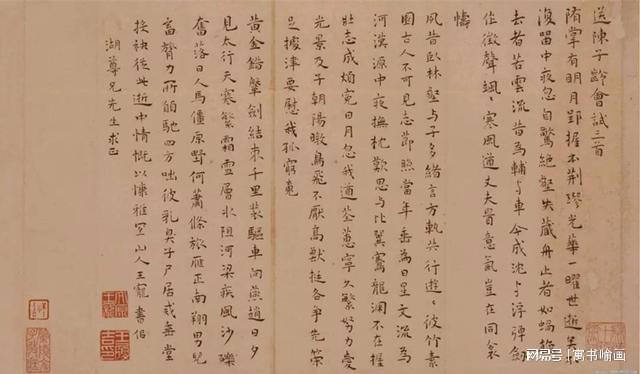 送陳子齡會試三首
隋掌有明月郢握不荆璆光華一曜世逝
復留中夜忽自驚絕壑失藏舟止者如蝸
去者若雲流昔為輔与車今成沈与浮彈劍
作徵聲颯寒風遒丈夫貴意氣豈在同衾
幬
夙昔臥林壑与子多緒言方軌共行遊彼竹素
園古人不可見志節照當年垂為日星文流為
河漢源中夜撫枕歎思与比翼騫龍淵不在握
壯志成煩寃日月忽我遒荃蕙寧久繁努力愛
光景及子朝陽暾鳥飛不厭高獸挺各爭先策
足據津要慰我孤窮
黃金錯鞶劍結束千里裝驅車向燕趙日夕
見太行天寒繁霜雪層冰阻河梁疾風沙礫
奮落日人馬僵原野何蕭條旅雁正南翔男兒
畜膂力所願馳四方咄彼乳臭子尸居戒垂堂
袂從此逝中情慨以慷雅宜山人王寵書似
湖尊兄先生求正
网易号 | 寓书喻画